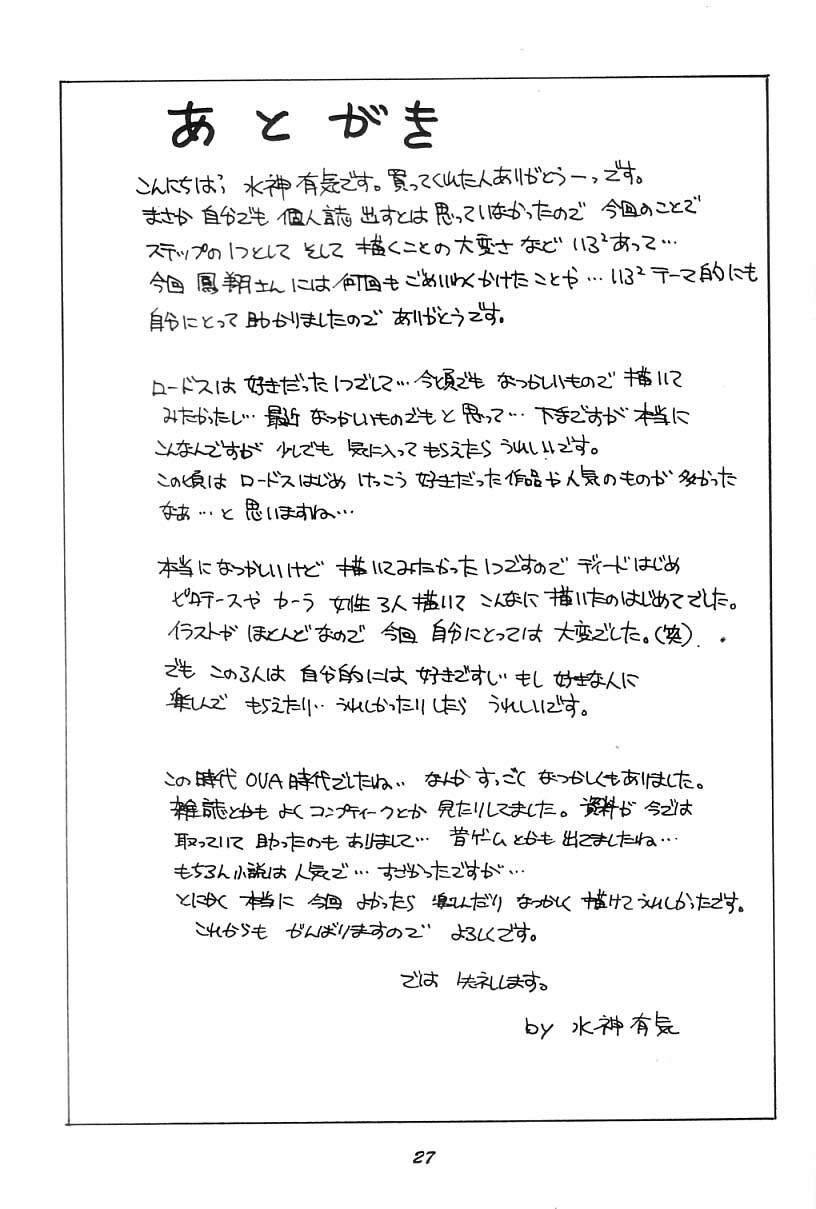 あとがき
こんにちはっ 水神有気です。買ってくれた人ありがとうーっです。
まさか 自分でも 個人誌 出すとは 思っていなかったので 今回のことで
ステップの1つとして そして 描くことの大変さなど いろ²あって…
今回 鳳翔さんには何回も ごめいわくかけたことや… いろ² テーマ的にも
自分にとって 助かりましたので ありがとうです。
ロードスは 好きだった1つでして… 今頃でも なつかしいもので 描いて
みたかったし… 最近 なつかしいものでもと 思って… 下手ですが 本当に
こんなんですが 少しでも 気に入って もらえたら うれしいです。
この頃は ロードスはじめ けっこう 好きだった作品や人気のものが 多かった
なぁ…と 思いますね…
本当になつかしいけど 描いてみたかった1つですので ディードはじめ
ピロテースや カーラ 女性3人 描いて こんなに 描いたのはじめてでした。
イラストが ほとんどなので 今回 自分にとっては 大変でした。(笑)
でも この3人は 自分的には 好きですし もし 好きな人に
楽しんで もらえたり… うれしかったりしたら うれしいです。
この時代 OVA時代でしたね… なんか すっごく なつかしくもありました。
雑誌とかも よく コンプティークとか 見たりしてました。資料が 今では
取っていて 助ったのも ありまして… 昔ゲームとかも 出てましたね…
もちろん小説は 人気で… すごかったですが…
とにかく 本当に 今回 よかったら 楽しんだり なつかしく 描けて うれしかったです。
これからも がんばりますので よろしくです。
では 失礼します。
by 水神有気
27